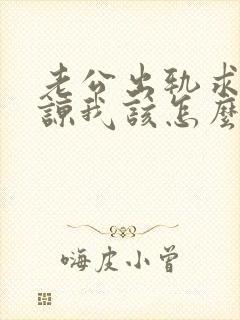 老公出轨求
谅我该怎麼
嗨皮小曾